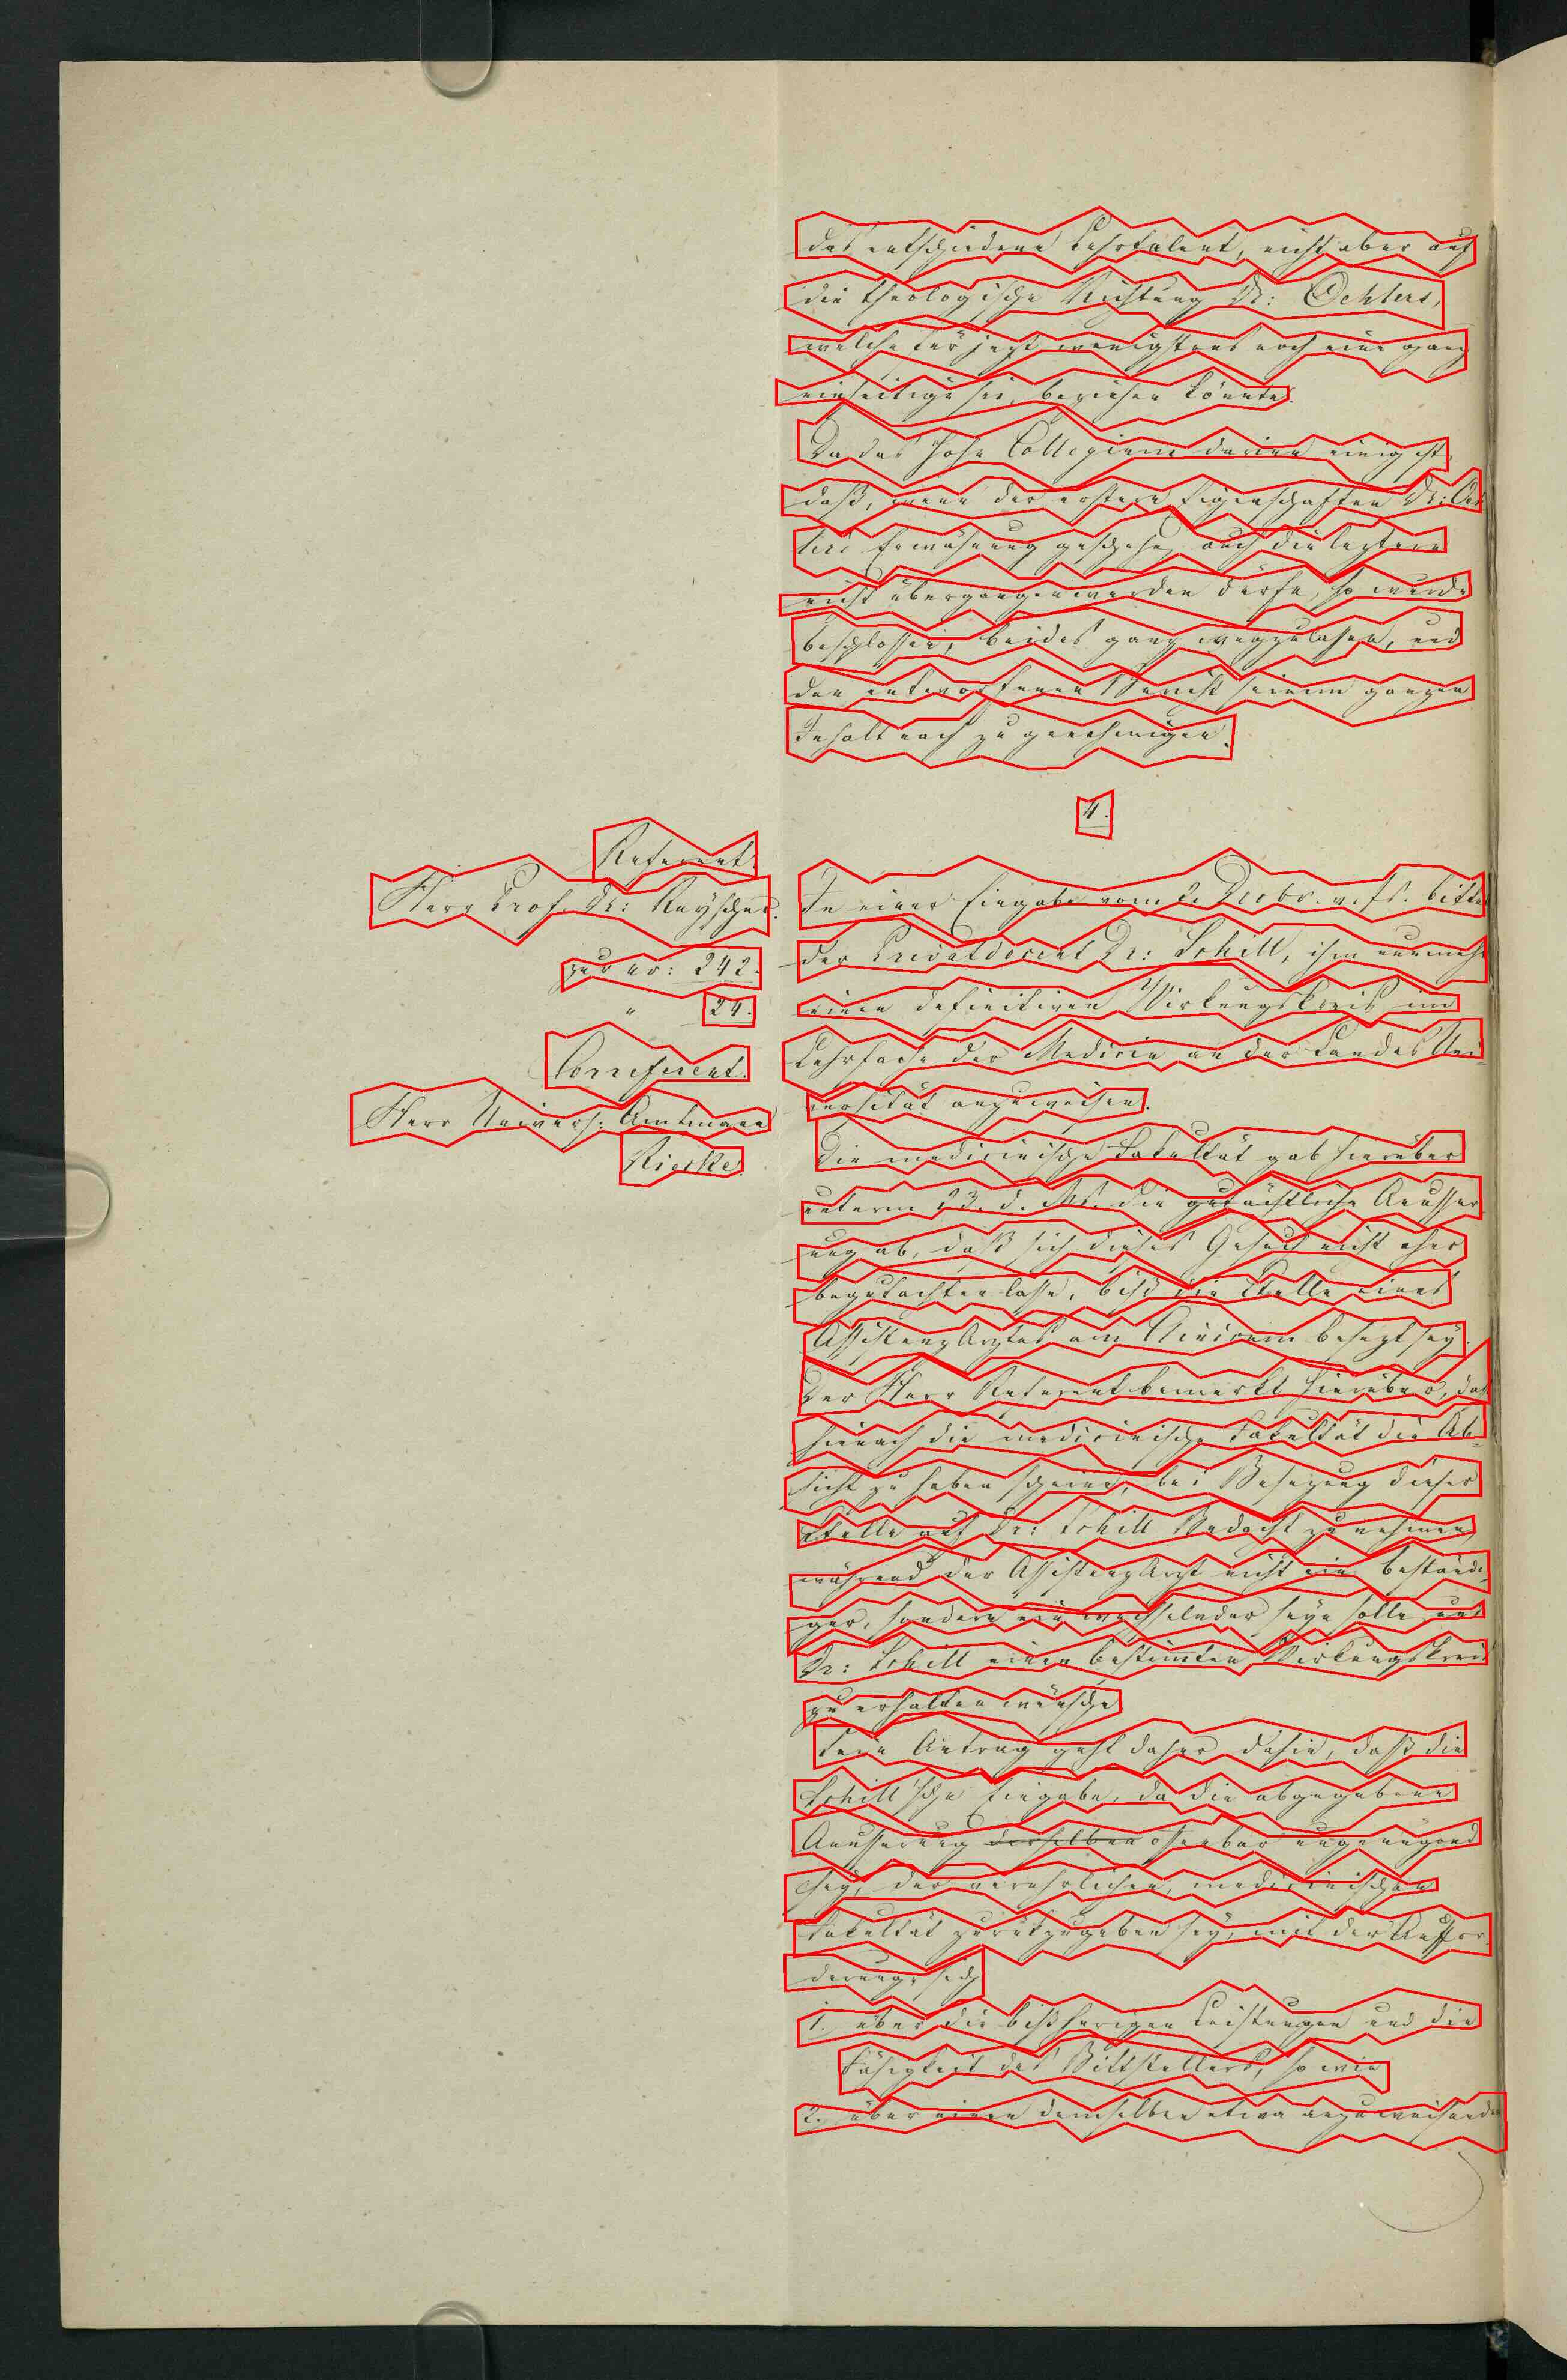 das entschiedene Lehrtalent, nicht aber auf
die theologische Richtung Dr: Oehlers,
welche für jezt wenigstens noch eine ganz
einseitige sei, beziehen könnte.
Da das hohe Collegium darinn einig ist,
daß, wenn der erstern Eigenschaften Dr: Oeh
lers Erwähnung geschehe, auch die leztere
nicht übergangen werden dürfe, so wurde
beschlossen, beides ganz wegzulassen, und
den entworfenen Bericht seinem ganzen
Inhalt nach zu genehmigen.
4.
Referent.
Herr Prof. Dr: Reyscher.
zur nr: 242.
" 24.
Correferent.
Herr Univers: Amtmann
Riecke.
In einer Eingabe vom 2. Decbr. v. Js. bittet
der Privatdocent Dr: Schill, ihm nunmehr
einen definitiven Wirkungskreis im
Lehrfache der Medicin an der Landes Uni
versität anzuweisen.
Die medicinische Fakultät gab hierüber
unterm 23. d. Ms. die gutächtliche Aeusser
ung ab, daß sich dieses Gesuch nicht eher
begutachten lasse, biß die Stelle eines
AssistenzArztes am Clinicum besezt sey.
Der Herr Referent bemerkt hierüber, daß
hienach die medicinische Fakultät die Ab=
sicht zu haben scheine, bei Besezung dieser
Stelle auf Dr: Schill Bedacht zu nehmen,
während der AssistenzArzt nicht ein beständi=
ger, sondern ein wechselnder seyn solle und
Dr: Schill einen bestimmten Wirkungskreis
zu erhalten wünsche.
Sein Antrag geht daher dahin, daß die
Schill'sche Eingabe, da die abgegebene
Aeusserung derselben offenbar ungenügend
sey, der verehrlichen, medicinischen
Fakultät zurükzugeben sey, mit der Auffor
derung, sich
1. über die bißherigen Leistungen und die
Fähigkeit des Bittstellers, so wie
2. über einen demselben etwa anzuweisenden